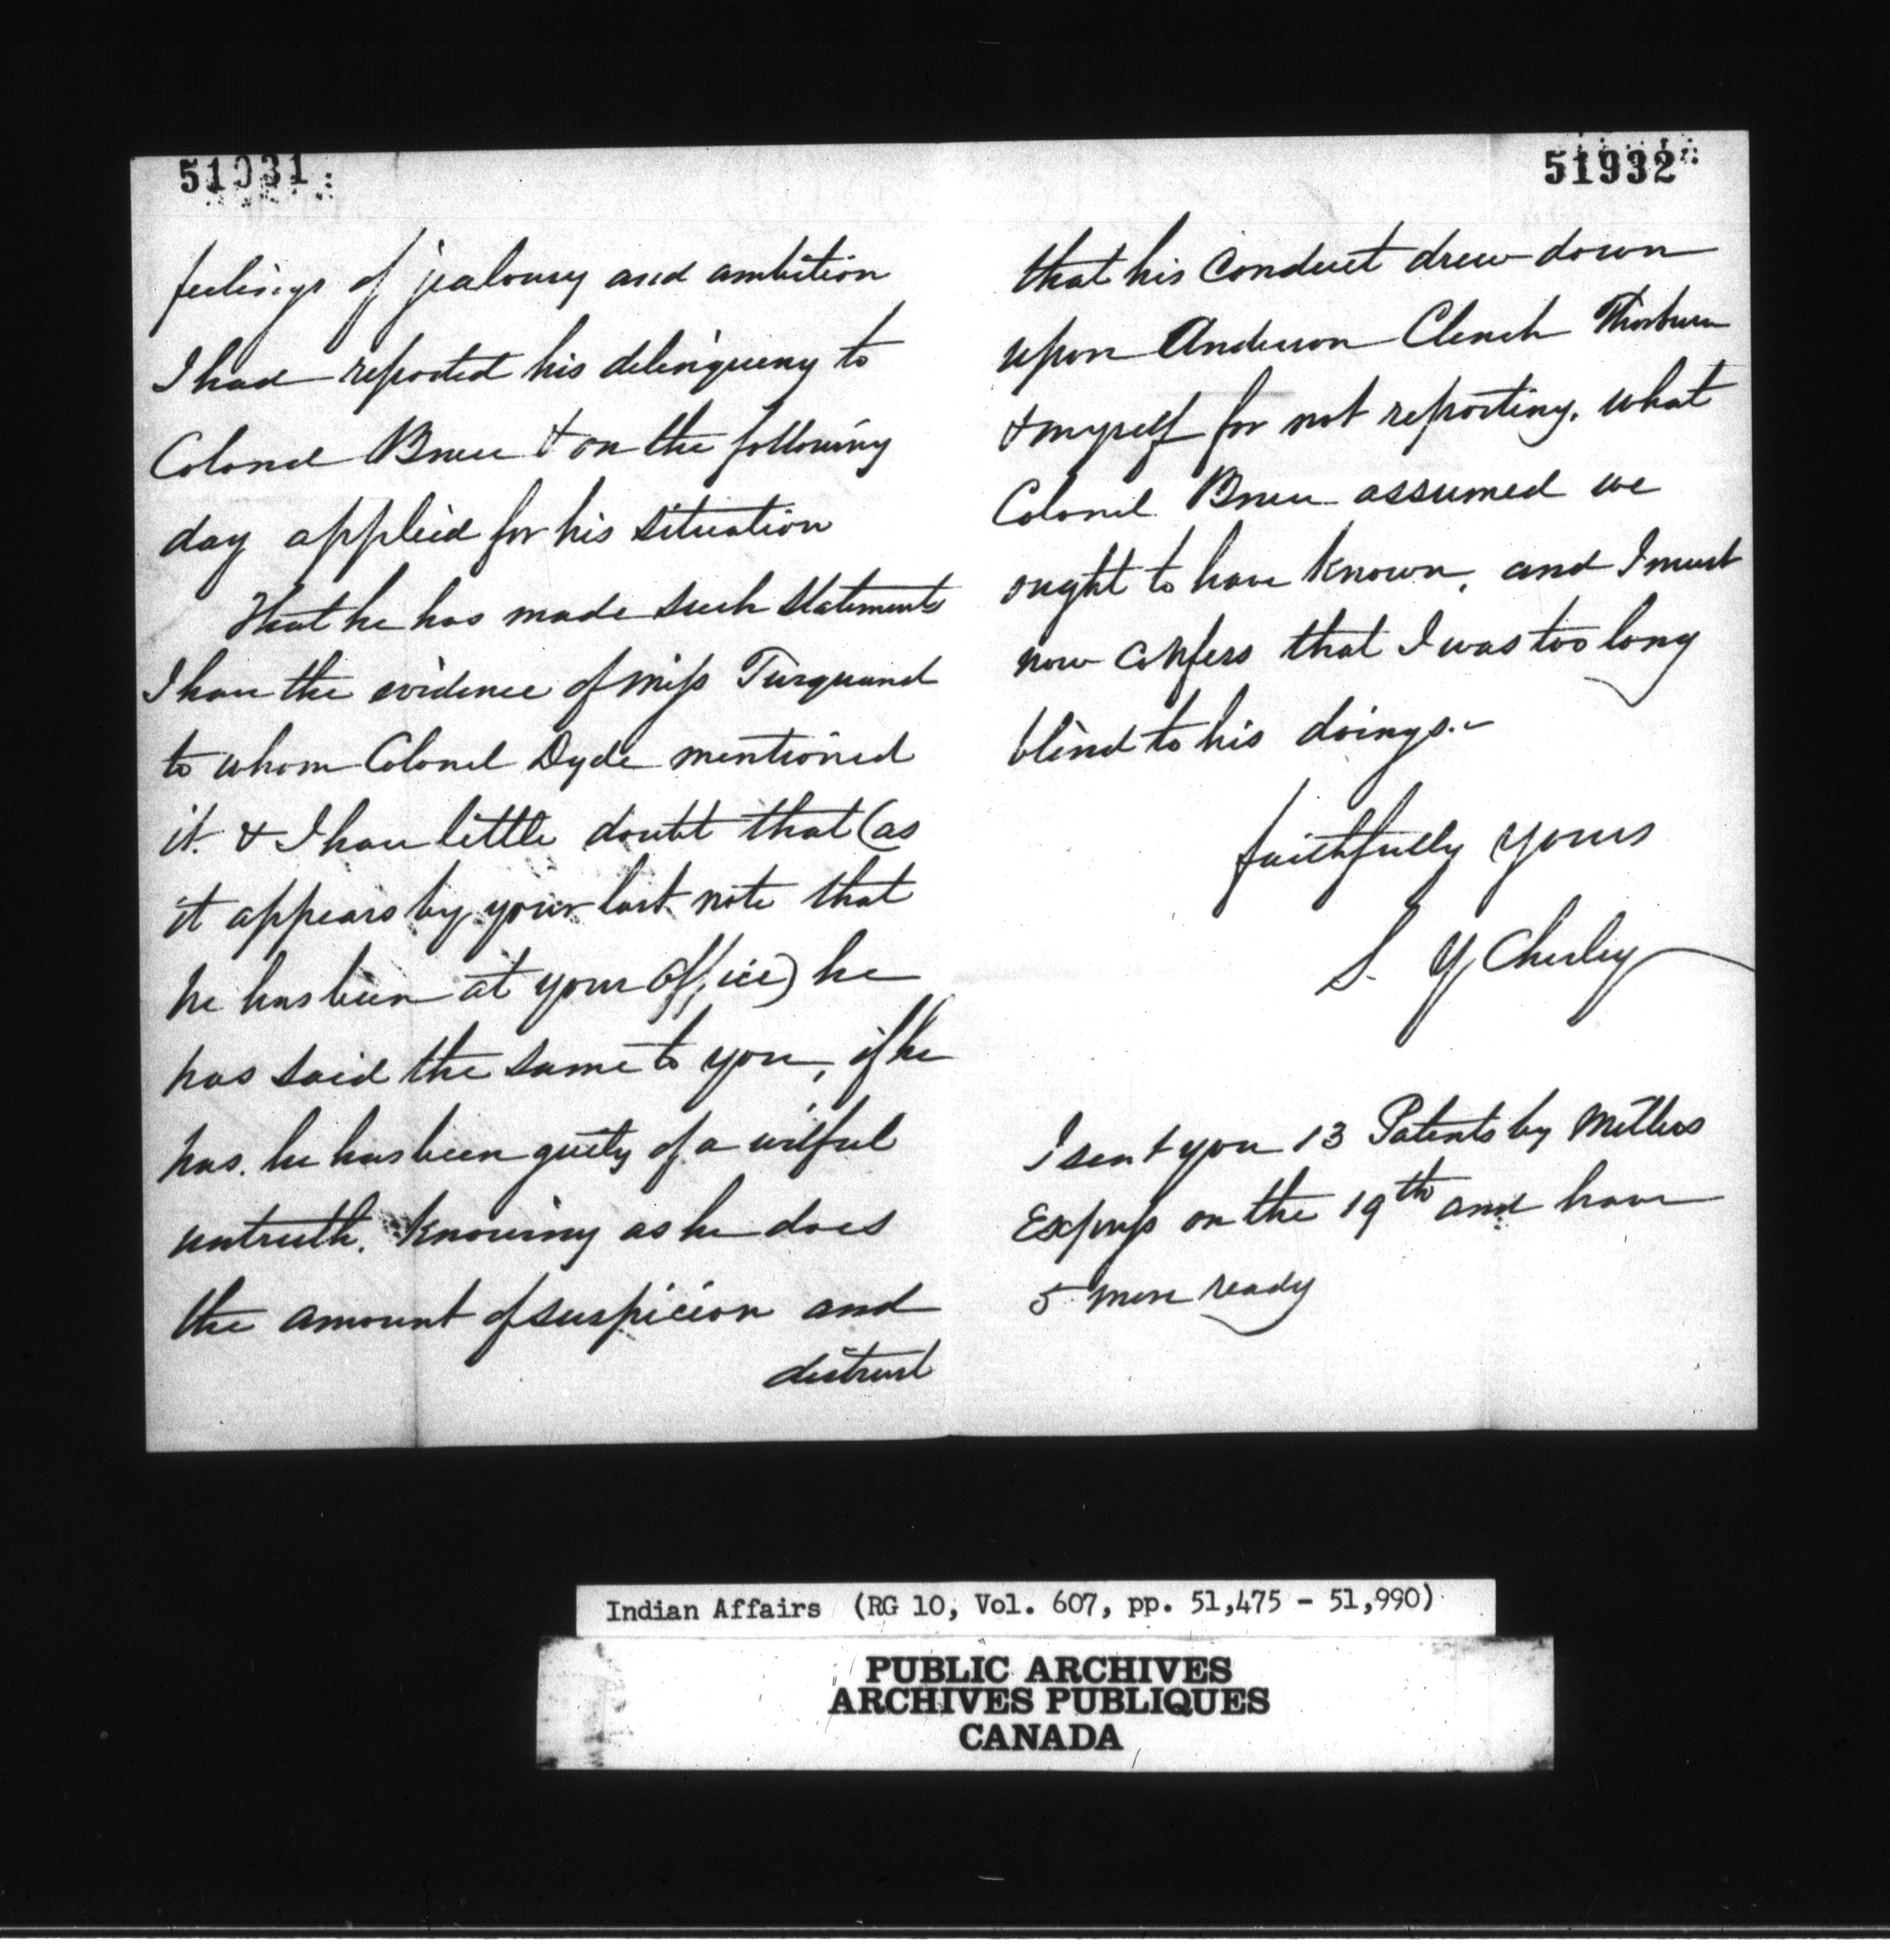 51931
feelings of jealousy and ambition
I had reported his delinquency to
Colonel Bruce & on the following
day applied for his situation
That he has made such statements
I have the evidence of Miss Turquand
to whom Colonel Dyde mentioned
it. & I have little doubt that (as
it appears by your last note that
he has been at your office) he
has said the same to you, if he
has. he has been guilty of a wilful
untruth. Knowing as he does
the amount of suspicion and
distrust
51932
that his conduct drew down
upon Anderson Clench Thorburn
& myself for not reporting. what
Colonel Bruce assumed we
ought to have known, and I must
now confess that I was too long
blind to his doings.-
faithfully yours
S. Y Chesley
I sent you 13 Patents by
Express on the 19th and have
5 more ready
Indian Affairs (RG 10, Vol. 607, pp. 51,475 - 51,990)
PUBLIC ARCHIVES
ARCHIVES PUBLIQUES
CANADA